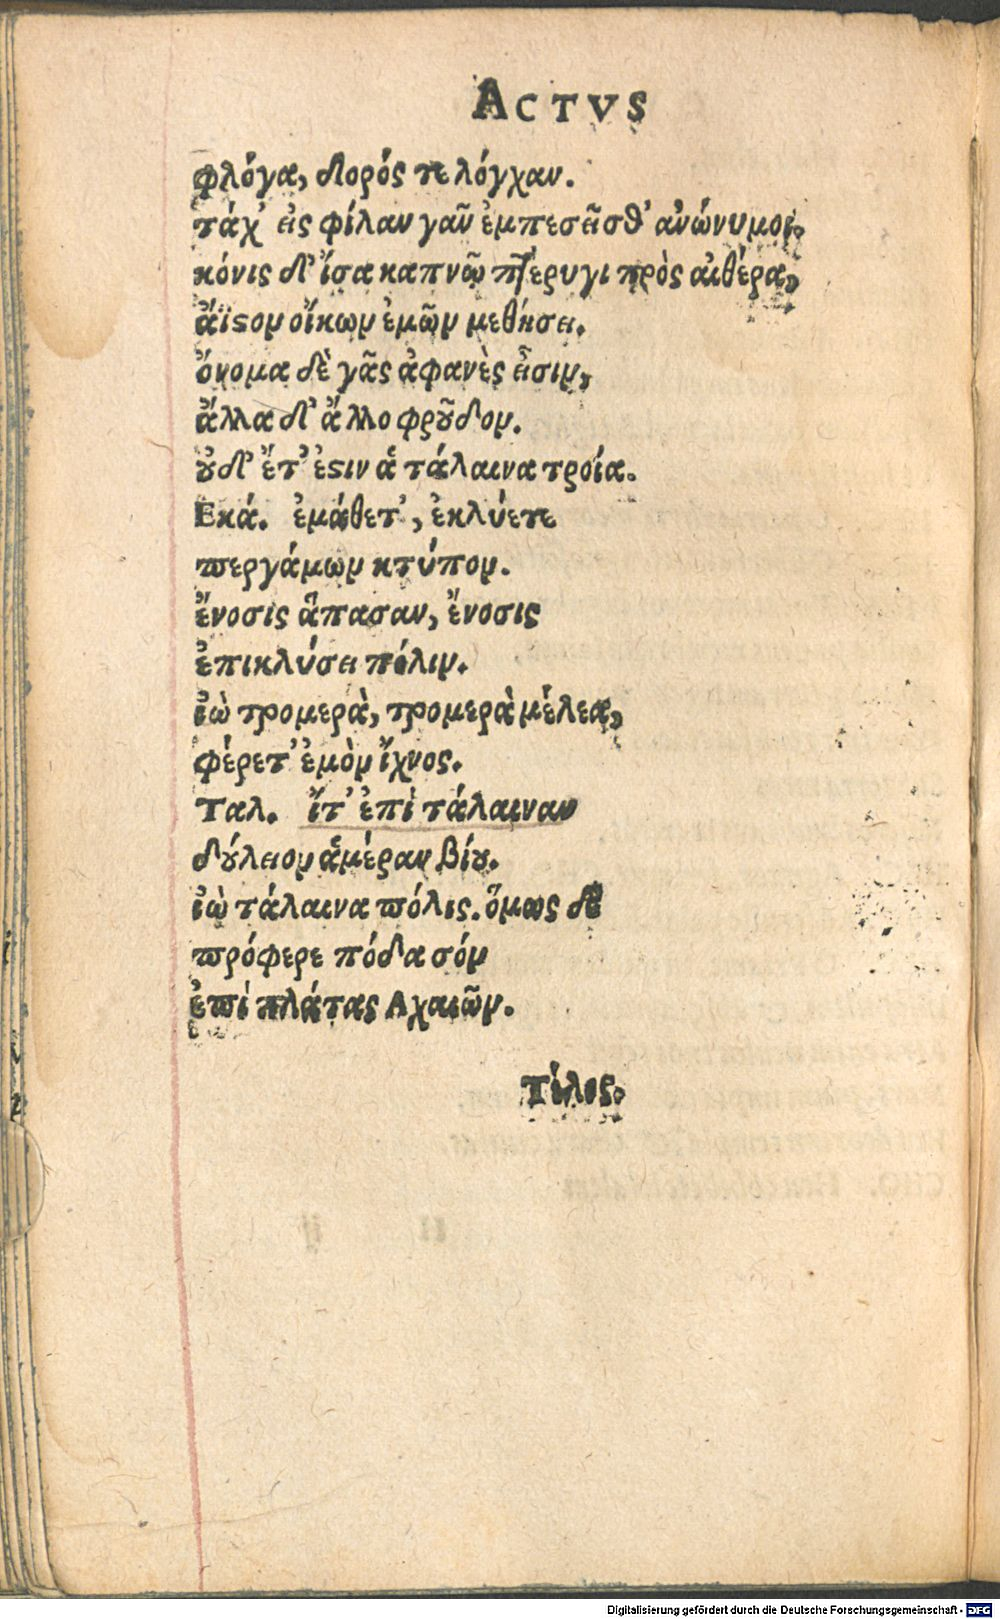 ACTVS
φλόγα, δορός τε λόγχαν.
τάχ' εἰς φίλαν γᾶν ἐμπεσεῖσθ' ἀνώνυμοι.
κόνις δ' ἴσα καπνῷ πτέρυγι πρὸς αἰθέρα,
ἄϊστον οἴκων ἐμῶν μεθήσει.
ὄνομα δὲ γᾶς ἀφανὲς εἶσιν,
ἄλλα δ' ἄλλο φροῦδον.
οὐδ' ἔτ' ἐστὶν ἁ τάλαινα τροία.
Εκά. ἐμάθετ', ἐκλύετε
περγάμων κτύπον.
ἔνοσις ἅπασαν, ἔνοσις
ἐπικλύσει πόλιν.
ἰὼ τρομερὰ, τρομερὰ μέλεα,
φέρετ' ἐμὸν ἴχνος.
Ταλ. ἴτ' ἐπὶ τάλαιναν
δούλειον ἁμέραν βίου.
ἰὼ τάλαινα πόλις. ὅμως δὲ
πρόφερε πόδα σόν
ἐπὶ πλάτας Αχαιῶν.
Τέλος.
Digitalisierung gefördert durch die Deutsche Forschungsgemeinschaft - DFG